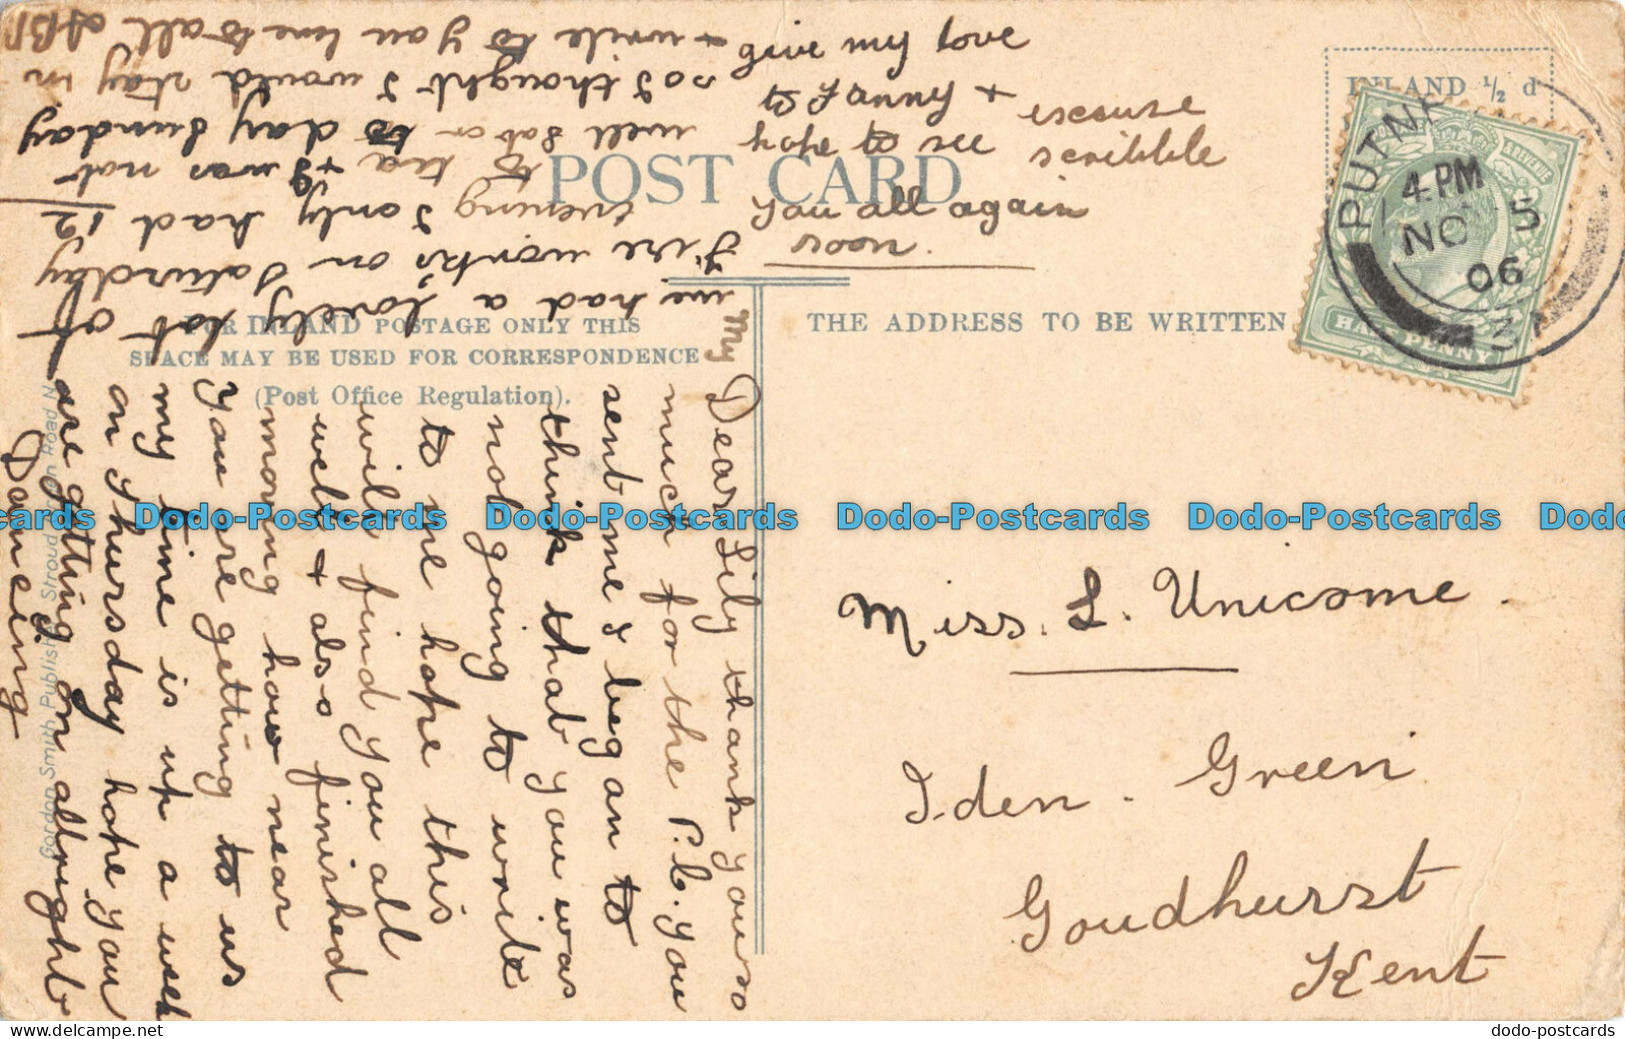 POST CARD
FOR INLAND POSTAGE ONLY THIS
SPACE MAY BE USED FOR CORRESPONDENCE
(Post Office Regulation).
THE ADDRESS TO BE WRITTEN
INLAND ½ d
PUTN
4. PM
NO 5
06
HALFPENNY
Miss. L. Unicome.
Iden. Green
Goudhurst
Kent
My
Dear Lily thank you so
much for the P.C. you
sent me I began to
think that you was
not going to write
to me hope this
will find you all
well + also finished
moving how near
you are getting to us
my time is up a week
on Thursday hope you
are getting on allright
Dancing
we had a lovely lot of
Fire works on Saturday
evening I only had 12
to tea + I was not
well Sat or to day Sunday
so I thought I would stay in
+ write to you love to all
give my love
to Fanny +
hope to see
you all again
soon.
escuse
scribble
Gordon Smith Publisher Stroud Green Road N
Dodo-Postcards Dodo-Postcards Dodo-Postcards Dodo-Postcards
dodo-postcards